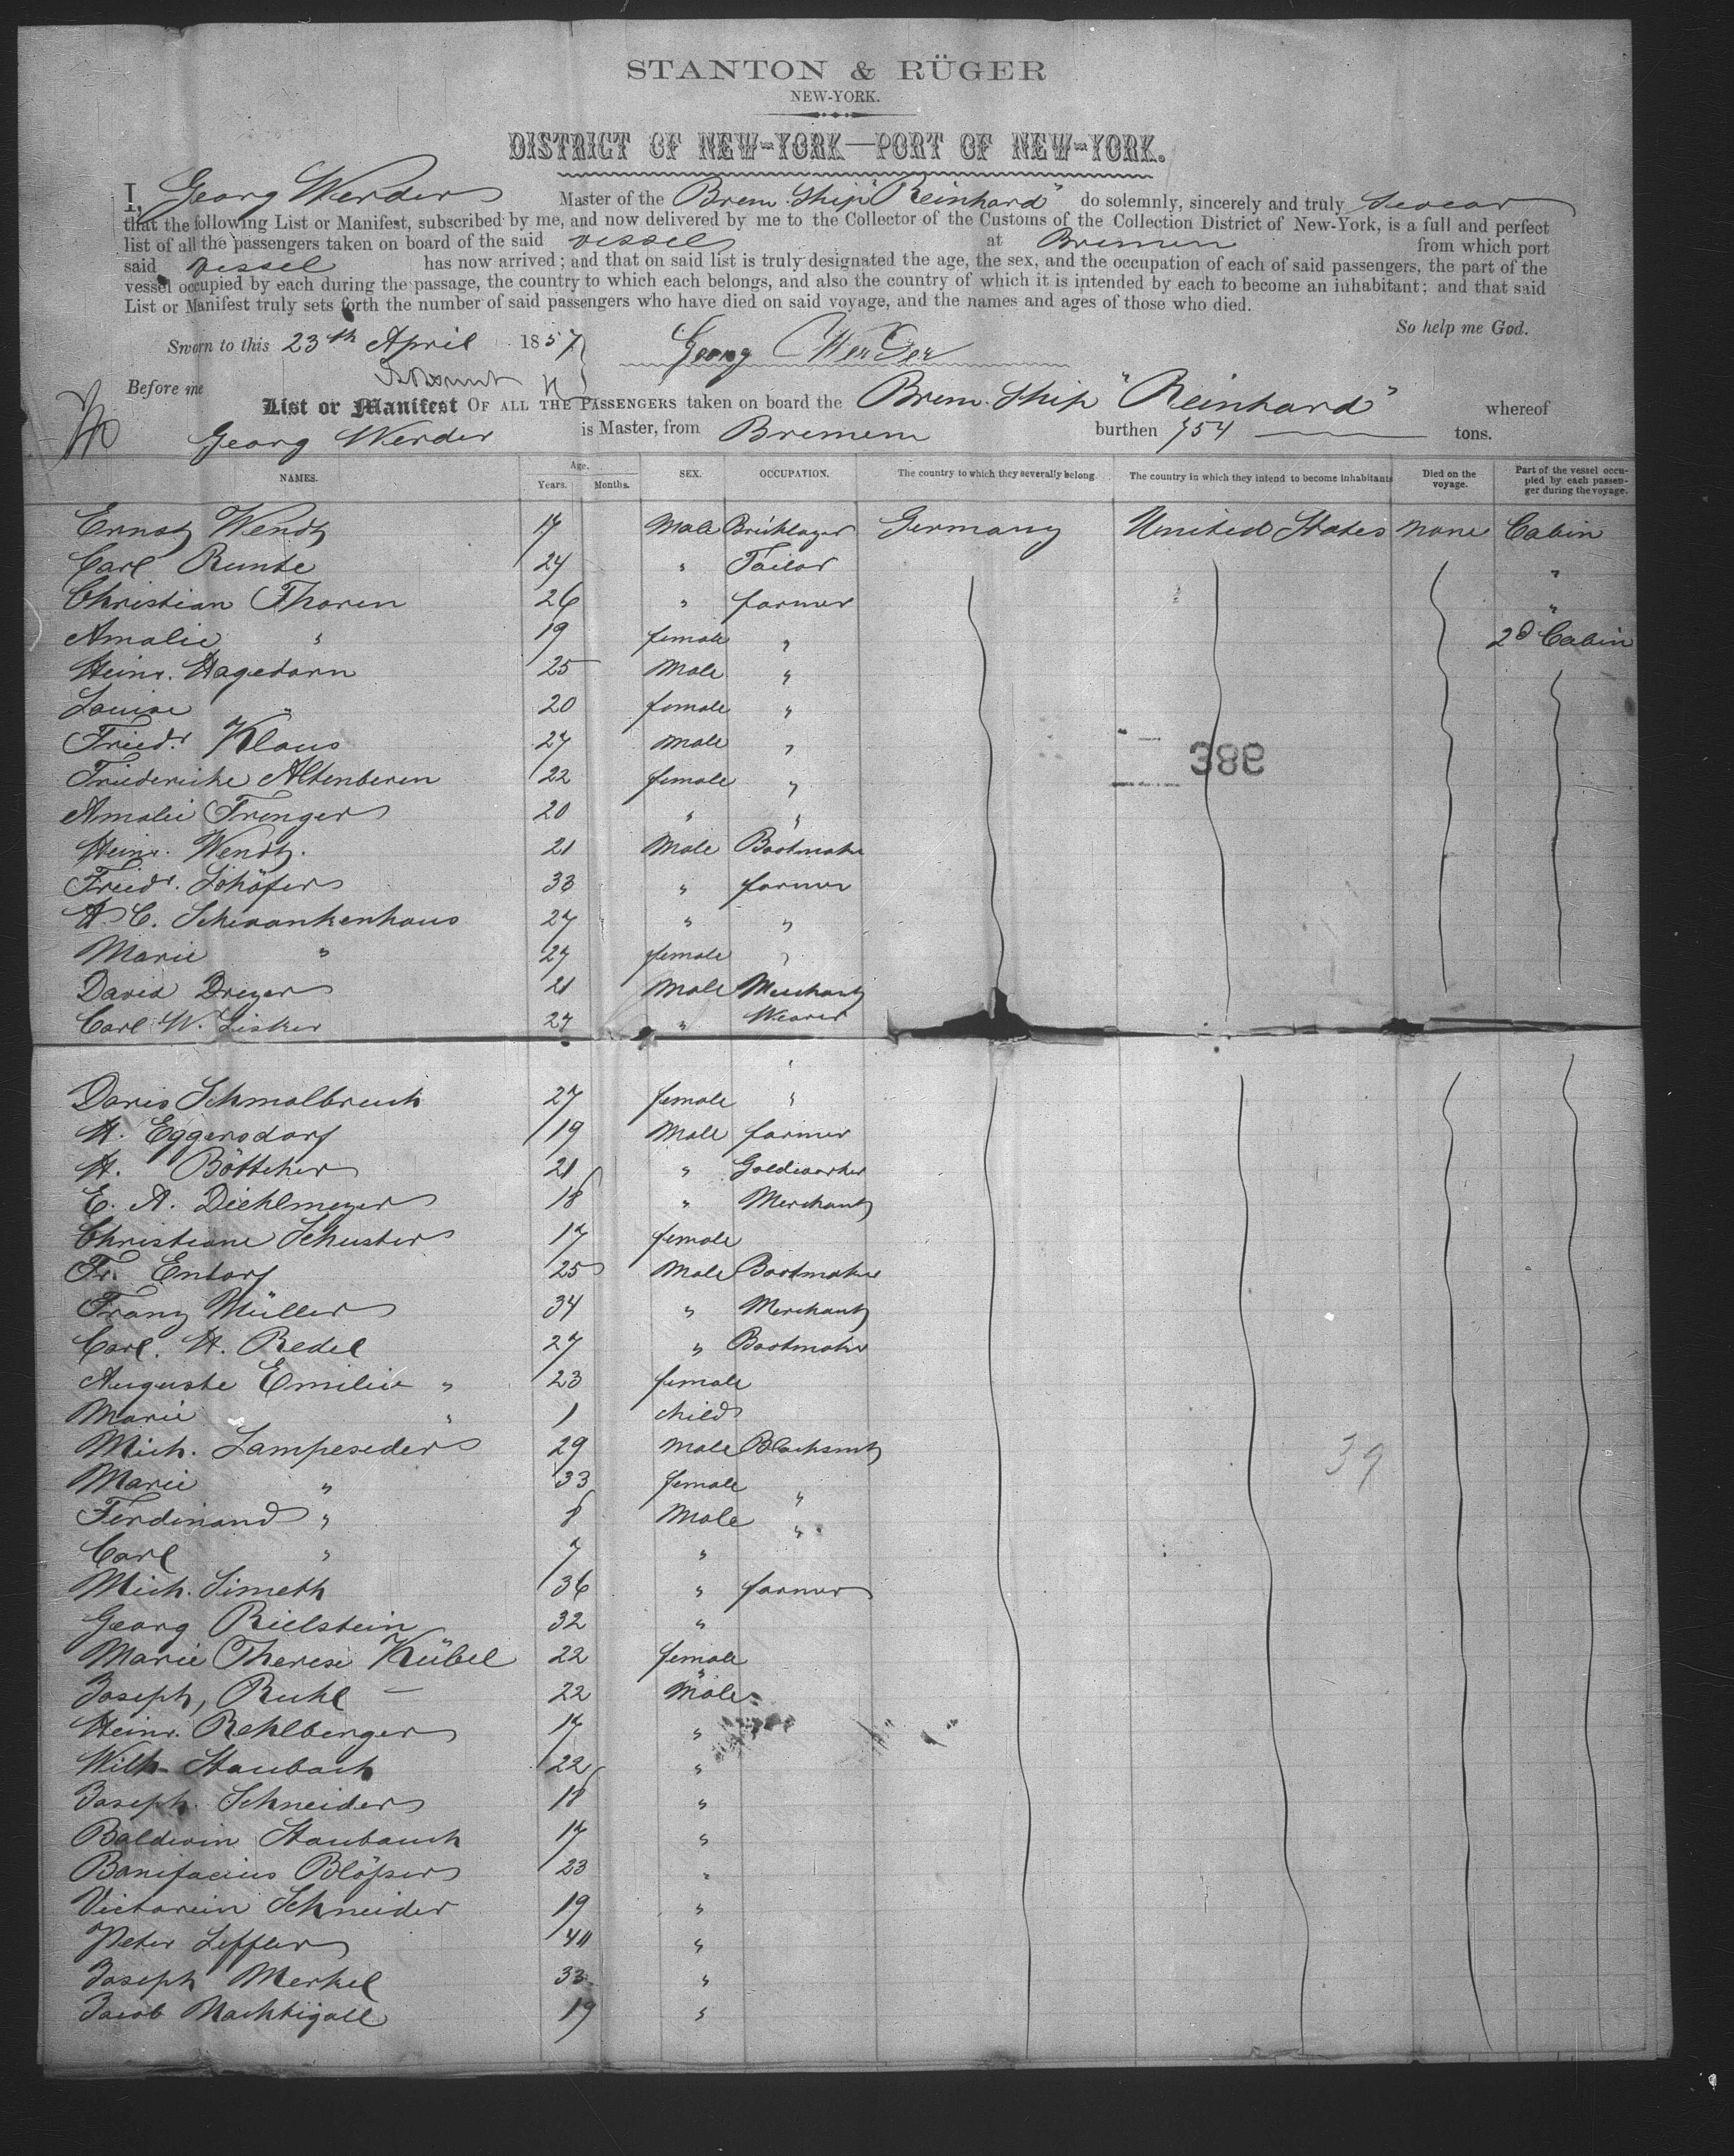 STANTON & RÜGER
NEW-YORK.
DISTRICT OF NEW-YORK—PORT OF NEW-YORK.
I, Georg Werder Master of the Brem. Ship "Reinhard" do solemnly, sincerely and truly Swear
that the following List or Manifest, subscribed by me, and now delivered by me to the Collector of the Customs of the Collection District of New-York, is a full and perfect
list of all the passengers taken on board of the said vessel at Bremen from which port
said vessel has now arrived; and that on said list is truly designated the age, the sex, and the occupation of each of said passengers, the part of the
vessel occupied by each during the passage, the country to which each belongs, and also the country of which it is intended by each to become an inhabitant; and that said
List or Manifest truly sets forth the number of said passengers who have died on said voyage, and the names and ages of those who died.
So help me God.
Sworn to this 23th April 1857 Georg Werder
Before me
List or Manifest OF ALL THE PASSENGERS taken on board the Brem. Ship "Reinhard" whereof
Georg Werder is Master, from Bremen burthen 754 tons.
NAMES. Age. Years. Months. SEX. OCCUPATION. The country to which they severally belong. The country in which they intend to become inhabitants Died on the voyage. Part of the vessel occupied by each passenger during the voyage.
Ernst Wendt 17 Male Bricklayer Germany United States none Cabin
Carl Runte 24 " Tailor "
Christian Thoren 26 " farmer "
Amalie " 19 female " 2d Cabin
Heinr. Hagedorn 25 Male "
Louise " 20 female "
Friedr. Klaus 27 Male "
Friederike Altenberen 22 female "
Amalie Frenger 20 " "
Heinr. Wendt. 21 Male Bootmaker
Friedr. Schäfer 33 " farmer
A. C. Schwankenhaus 27 " "
Marie " 27 female "
David Dreyer 21 Male Merchant
Carl W. Lisker 27 " Weaver
Doris Schmalbruch 27 female "
H. Eggersdorf 19 Male farmer
H. Böttcher 21 " Goldworker
E. A. Diehlmeyer 18 " Merchant
Christiane Schuster 17 female
Fr. Entorf 25 Male Bootmaker
Franz Müller 34 " Merchant
Carl. H. Redel 27 " Bootmaker
Auguste Emilie " 23 female
Marie " 1 child
Mich. Lampeseder 29 Male Blacksmith
Marie " 33 female "
Ferdinand " 8 Male "
Carl " 7 "
Mich. Simeth 36 " farmer
Georg Rielstein 32 "
Marie Therese Kübel 22 female
Joseph, Ruhl 22 Male
Heinr. Rehlberger 17 "
Wilh. Staubach 22 "
Joseph Schneider 18 "
Baldwin Staubach 17 "
Bonifacius Blößer 23 "
Victorin Schneider 19 "
Peter Leffler 40 "
Joseph Merkel 33 "
Jacob Nachtigall 19 "
39